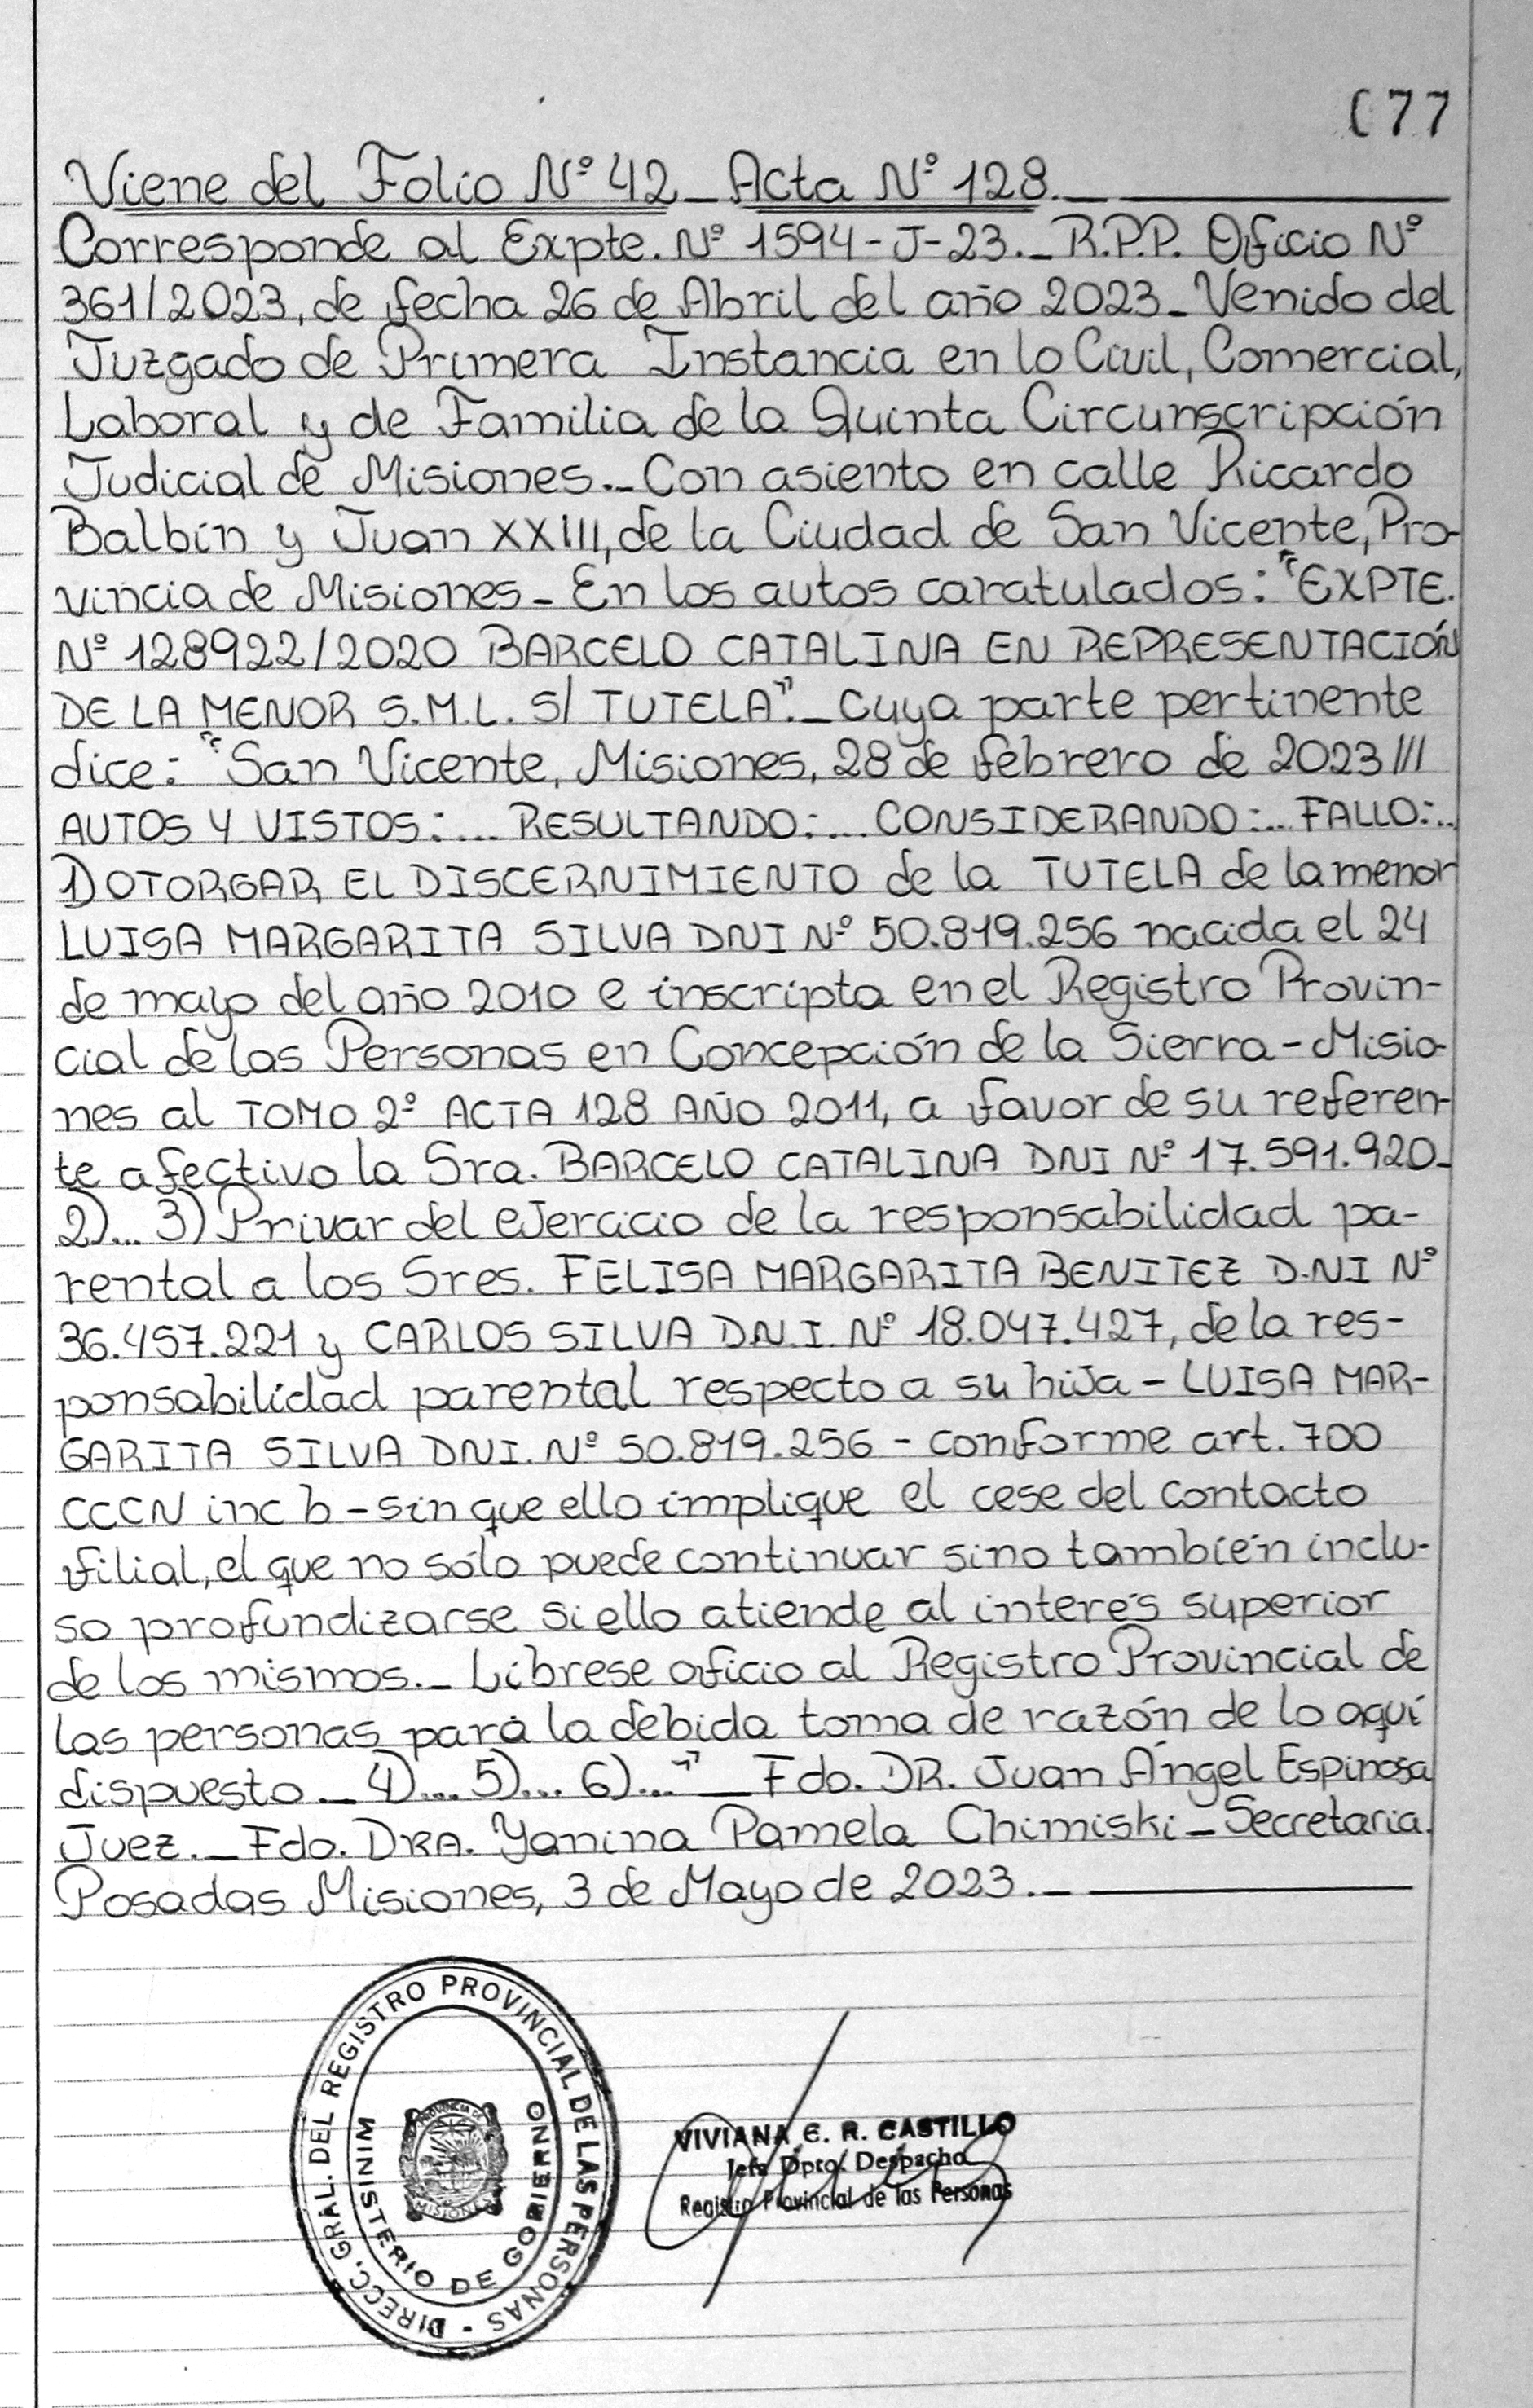 077
Viene del Folio Nº 42_ Acta Nº 128._
Corresponde al Expte. Nº 1594-J-23._ R.P.P. Oficio Nº
361/2023, de fecha 26 de Abril del año 2023_ Venido del
Juzgado de Primera Instancia en lo Civil, Comercial,
Laboral y de Familia de la Quinta Circunscripción
Judicial de Misiones._ Con asiento en calle Ricardo
Balbín y Juan XXIII, de la Ciudad de San Vicente, Pro-
vincia de Misiones_ En los autos caratulados: "EXPTE.
Nº 128922/2020 BARCELO CATALINA EN REPRESENTACIÓN
DE LA MENOR S.M.L. S/ TUTELA"._ Cuya parte pertinente
dice: "San Vicente, Misiones, 28 de febrero de 2023///
AUTOS Y VISTOS:... RESULTANDO:... CONSIDERANDO:... FALLO:..
1) OTORGAR EL DISCERNIMIENTO de la TUTELA de la menor
LUISA MARGARITA SILVA DNI Nº 50.819.256 nacida el 24
de mayo del año 2010 e inscripta en el Registro Provin-
cial de las Personas en Concepción de la Sierra-Misio-
nes al TOMO 2º ACTA 128 AÑO 2011, a favor de su referen-
te afectivo la Sra. BARCELO CATALINA DNI Nº 17.591.920_
2)... 3) Privar del ejercicio de la responsabilidad pa-
rental a los Sres. FELISA MARGARITA BENITEZ D.NI Nº
36.457.221 y CARLOS SILVA D.N.I. Nº 18.047.427, de la res-
ponsabilidad parental respecto a su hija - LUISA MAR-
GARITA SILVA DNI. Nº 50.819.256 - conforme art. 700
CCCN inc b - sin que ello implique el cese del contacto
filial, el que no sólo puede continuar sino también inclu-
so profundizarse si ello atiende al interés superior
de los mismos._ Líbrese oficio al Registro Provincial de
las personas para la debida toma de razón de lo aquí
dispuesto._ 4)... 5)... 6)..." _ Fdo. DR. Juan Ángel Espinosa
Juez._ Fdo. DRA. Yanina Pamela Chimiski_ Secretaria.
Posadas Misiones, 3 de Mayo de 2023._
DIRECC. GRAL. DEL REGISTRO PROVINCIAL DE LAS PERSONAS -
MINISTERIO DE GOBIERNO
PROVINCIA DE
MISIONES
VIVIANA E. R. CASTILLO
Jefa Dpto. Despacho
Registro Provincial de las Personas